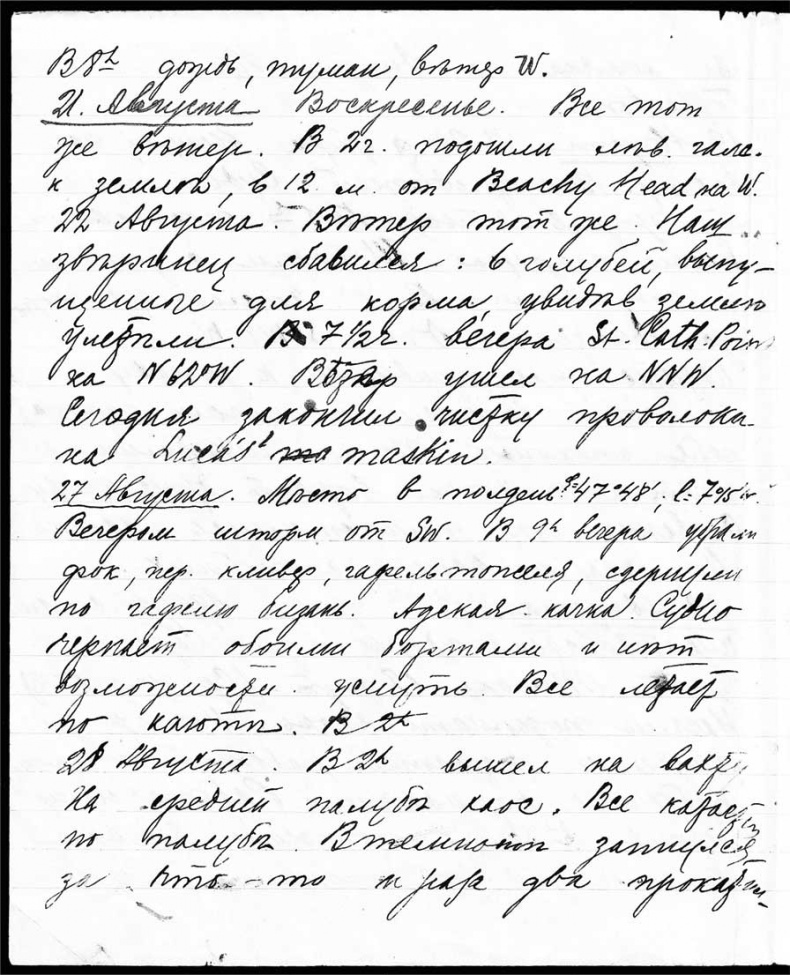 В 8h дождь, туман, вѣтер W.
21. Августа Воскресенье. Все тот
же вѣтер. В 2 г. подошли лѣв. гала.
к землѣ, в 12. м. от Beachy Head на W.
22 Августа. Вѣтер тот же. Наш
звѣринец сбавился: 6 голубей, выпу-
щенные для корма, увидѣв землю
улетѣли. В 7 1/2 г. вечера St. Cath. Poin
на N 62°W. Вѣтер ушел на NNW
Сегодня закончил чистку проволоки
на Lucas's maskin.
27 Августа. Мѣсто в полдень 47°48';
Вечером шторм от SW. В 9h вечера убрали
фок, пер. кливер, гафельтопселя, сдернули
по гафелю бизань. Адская качка. Судно
черпает обоими бортами и нѣт
возможности уснуть. Все летает
по каютѣ. В 2h
28 Августа. В 2h вышел на вахту
На средней палубѣ хаос. Все катается
по палубѣ. В темнотѣ запнулся
за что-то и раза два прокати-